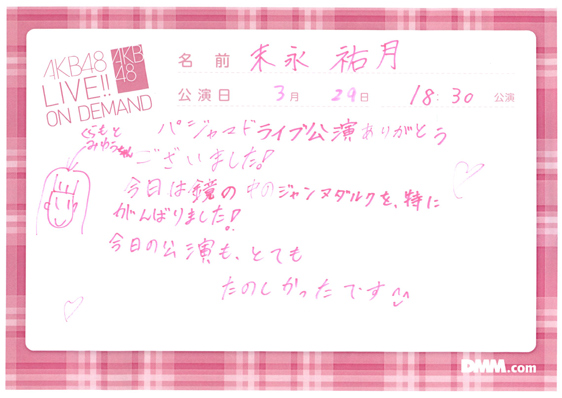 AKB48
LIVE!!
ON DEMAND
AKB
48
名前 末永祐月
公演日 3月 29日 18:30 公演
くらもと
みゆうちゃん
パジャマドライブ公演ありがとう
ございました!
今日は鏡の中のジャンヌダルクを、特に
がんばりました!
今日の公演も、とても
たのしかったです^^
DMM.com